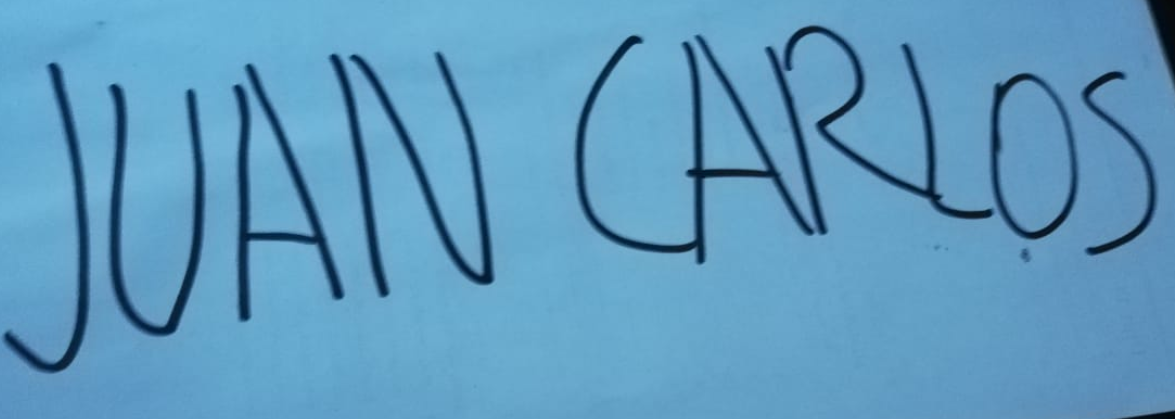 JUAN CARLOS